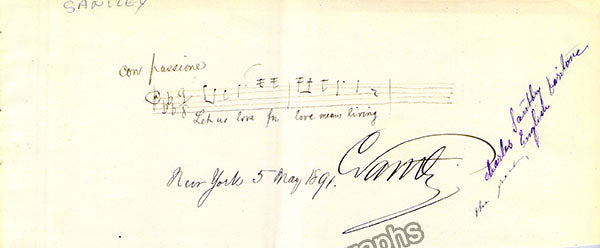 SANTLEY
con passione
Let us love for love means living
New York 5 May 1891. CSantley
Charles Santley
English baritone
the
graphs